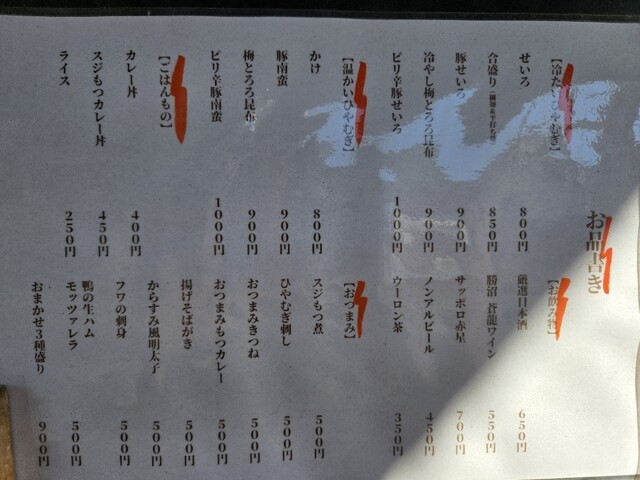 お品書き
【冷たいひやむぎ】
せいろ 800円
合盛り 850円
豚せいろ 900円
冷やし梅とろろ昆布 900円
ピリ辛豚せいろ 1000円
【温かいひやむぎ】
かけ 800円
豚南蛮 900円
梅とろろ昆布 900円
ピリ辛豚南蛮 1000円
【ごはんもの】
カレー丼 400円
スジもつカレー丼 450円
ライス 250円
【お飲み物】
厳選日本酒 650円
勝沼 蒼龍ワイン 550円
サッポロ赤星 700円
ノンアルビール 450円
ウーロン茶 350円
【おつまみ】
スジもつ煮 500円
ひやむぎ刺し 500円
おつまみきつね 500円
おつまみもつカレー 500円
揚げそばがき 500円
からすみ風明太子 500円
フワの刺身 500円
鴨の生ハム
モッツァレラ 500円
おまかせ3種盛り 900円